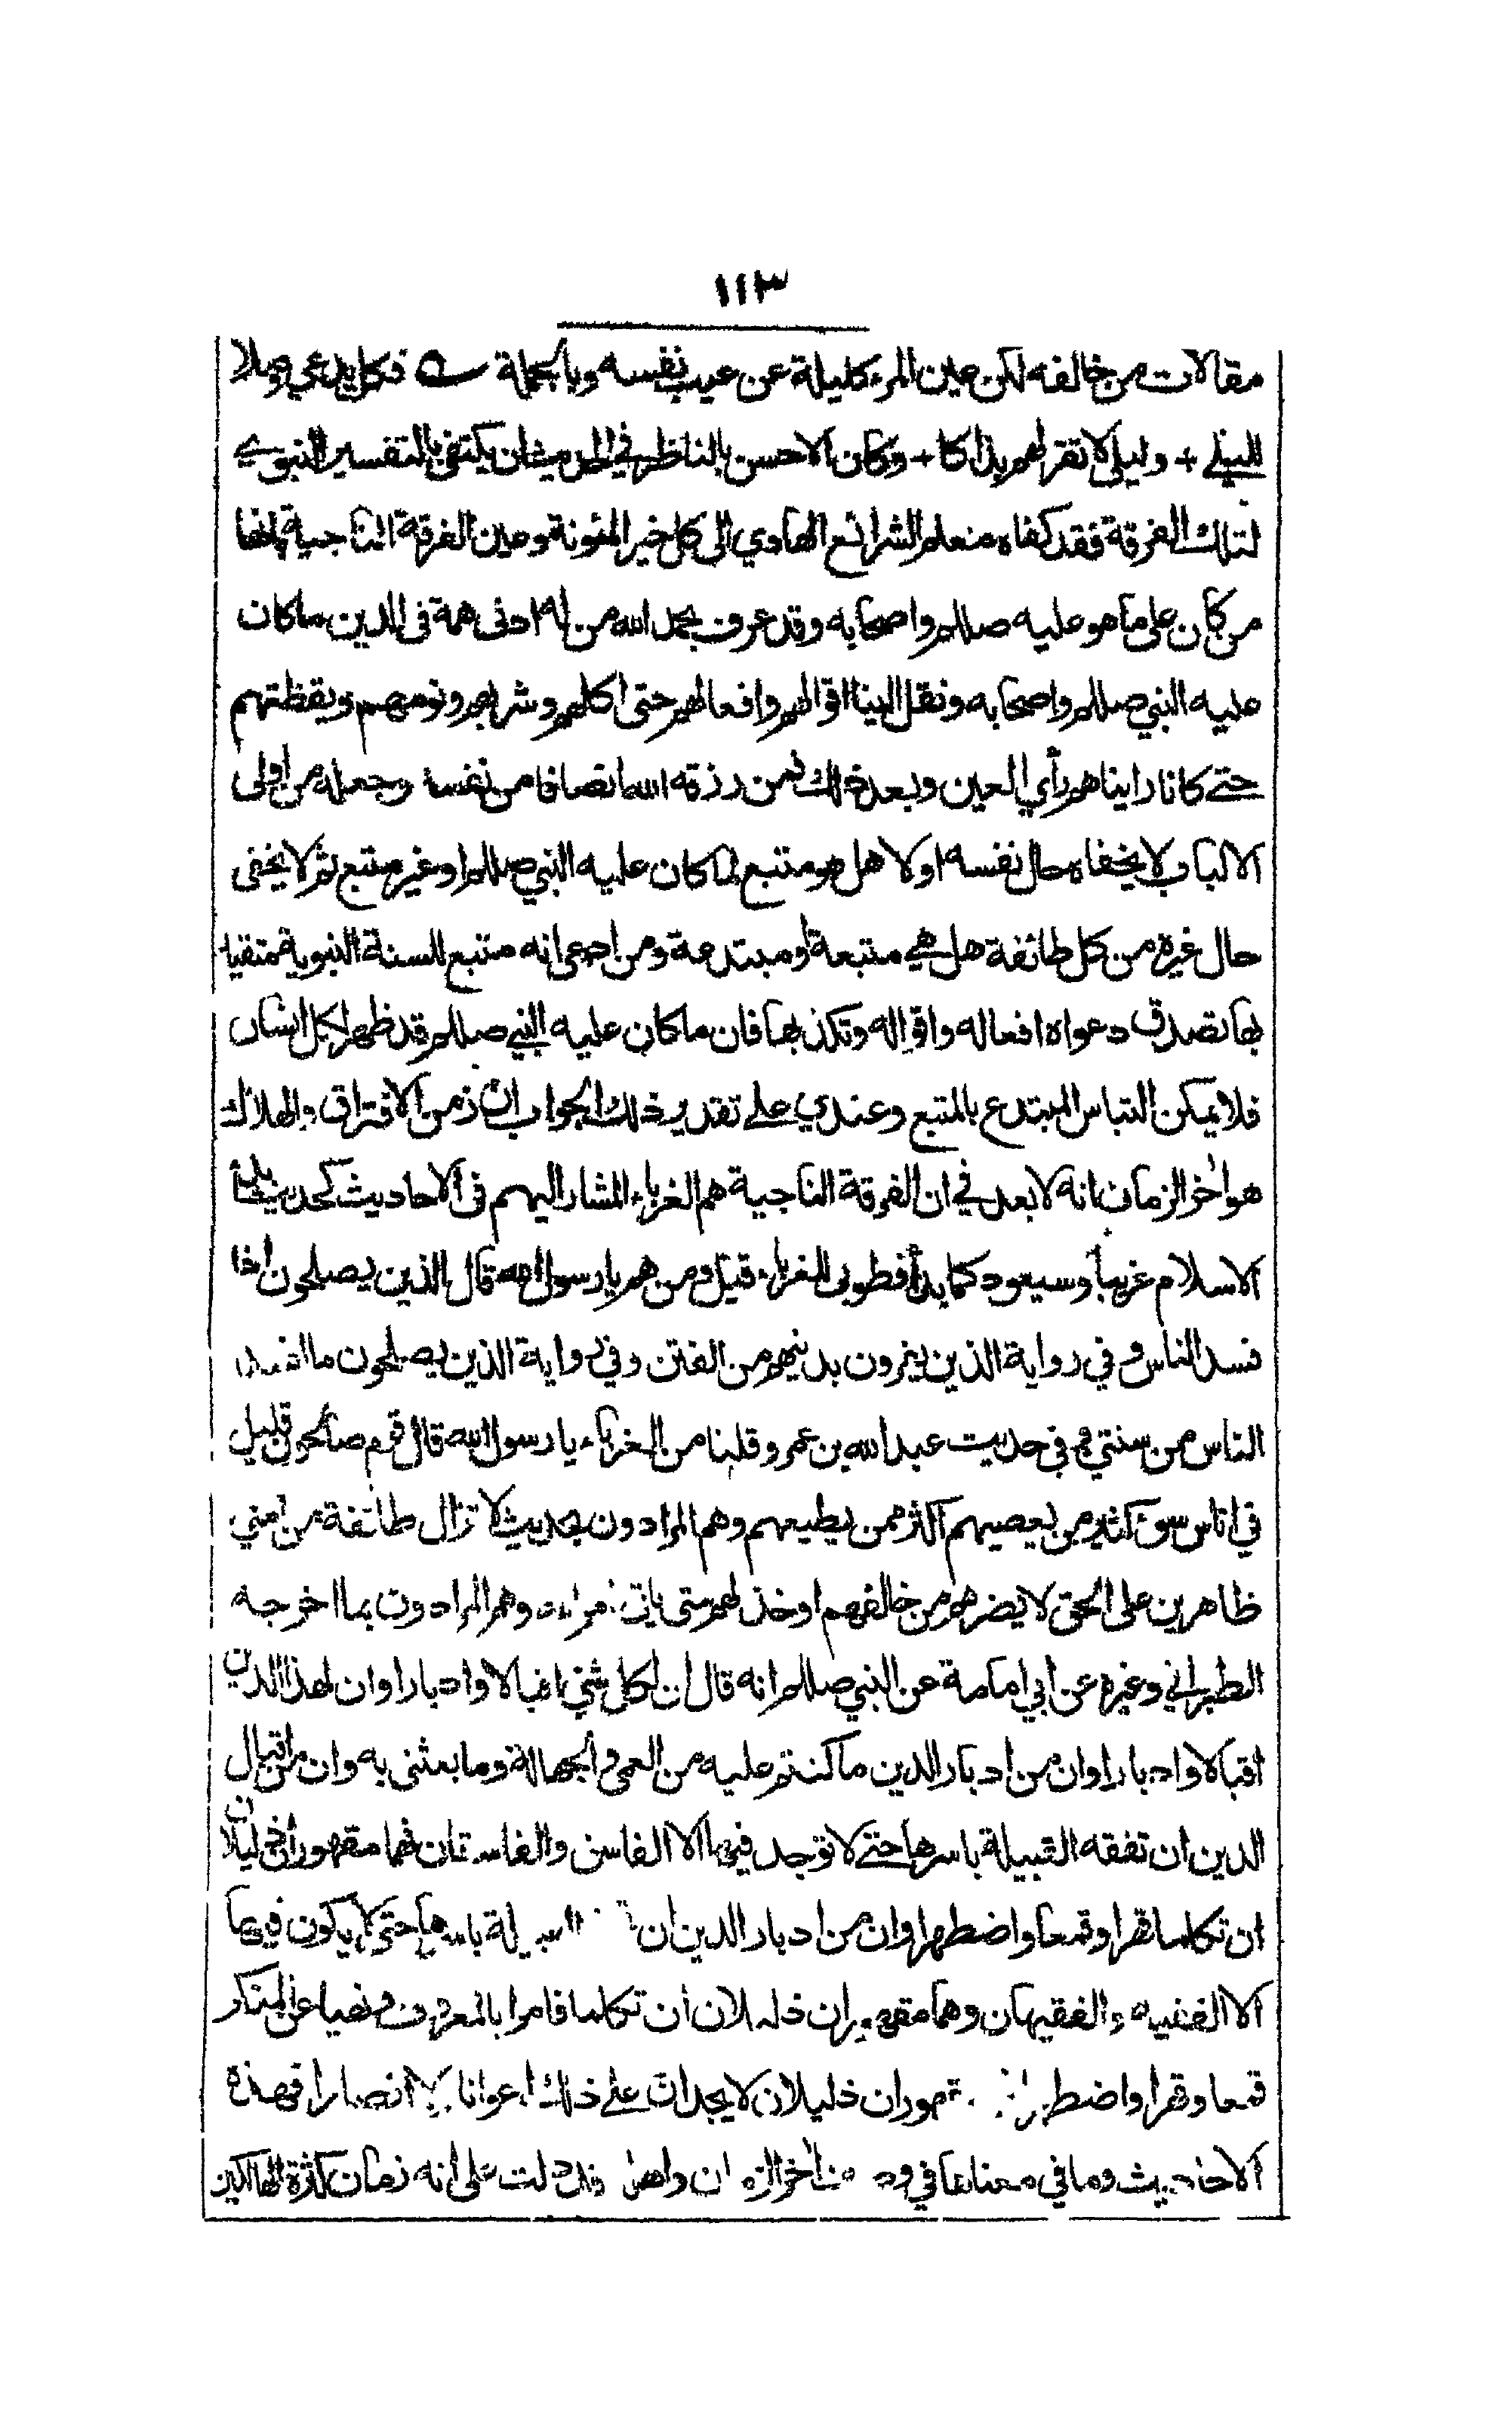 ١١٣
مقالات من خالفه لكن عين المرء كليلة عن عيب نفسه وبالجملة فكل يدعي وصلا
لليلى + وليلى لا تقر لهم بذاكا + وكان الاحسن بالناظر في الحديث ان يكتفي بالتفسير النبوي
لتلك الفرقة فقد كفاه معلم الشرائع الهادي الى كل خير المئونة وعين الفرقة الناجية بانها
من كان على ما هو عليه صللم واصحابه وقد عرف بحمد الله من له ادنى همة في الدين ما كان
عليه النبي صللم واصحابه ونقل الينا اقوالهم وافعالهم حتى اكلهم وشربهم ونومهم ويقظتهم
حتى كانا رايناهم رأي العين وبعد ذلك فمن رزقه الله انصافا من نفسه وجعله من اولى
الالباب لا يخفاه حال نفسه اولا هل هو متبع لما كان عليه النبي صللم او غير متبع ثم لا يخفى
حال غيره من كل طائفة هل هي متبعة او مبتدعة ومن ادعى انه متبع للسنة النبوية متقيد
بها تصدق دعواه افعاله واقواله وتكذبها فان ما كان عليه النبي صللم قد ظهر لكل انسان
فلا يمكن التباس المبتدع بالمتبع وعندي على تقدير ذلك الجواب ان زمن الافتراق والهلاك
هو اٰخر الزمان انه لا بعد في ان الفرقة الناجية هم الغرباء المشار اليهم في الاحاديث كحديث بدأ
الاسلام غريبا وسيعود كما بدأ فطوبى للغرباء قيل ومن هم يا رسول الله قال الذين يصلحون اذا
فسد الناس وفي رواية الذين يفرون بدينهم من الفتن وفي رواية الذين يصلحون ما افسد
الناس من سنتي وفي حديث عبد الله بن عمرو قلنا من الغرباء يا رسول الله قال قوم صالحون قليل
في اناس سوء كثير من يعصيهم اكثر ممن يطيعهم وهم المرادون بحديث لا تزال طائفة من امتي
ظاهرين على الحق لا يضرهم من خالفهم او خذلهم حتى ياتي امر الله وهم المرادون بما اخرجه
الطبراني وغيره عن ابي امامة عن النبي صللم انه قال ان لكل شئ اقبالا وادبارا وان لهذا الدين
اقبالا وادبارا وان من ادبار الدين ما كنتم عليه من العمى والجهالة وما بعثني به وان من اقبال
الدين ان تفقه القبيلة باسرها حتى لا توجد فيها الا الفاسق والفاسقان فهما مقهوران ذليلان
ان تكلما قهرا وقمعا واضطهرا وان من ادبار الدين ان القبيلة باسرها حتى لا يكون فيها
الا الفقيه والفقيهان وهما مقهوران ذليلان ان تكلما فامرا بالمعروف ونهيا عن المنكر
قمعا وقهرا واضطهرا مقهوران ذليلان لا يجدان على ذلك اعوانا ولا انصارا فهذه
الاحاديث وما في معناها في اٰخر الزمان واهله فقد دلت على انه زمان كثرة الهالكين